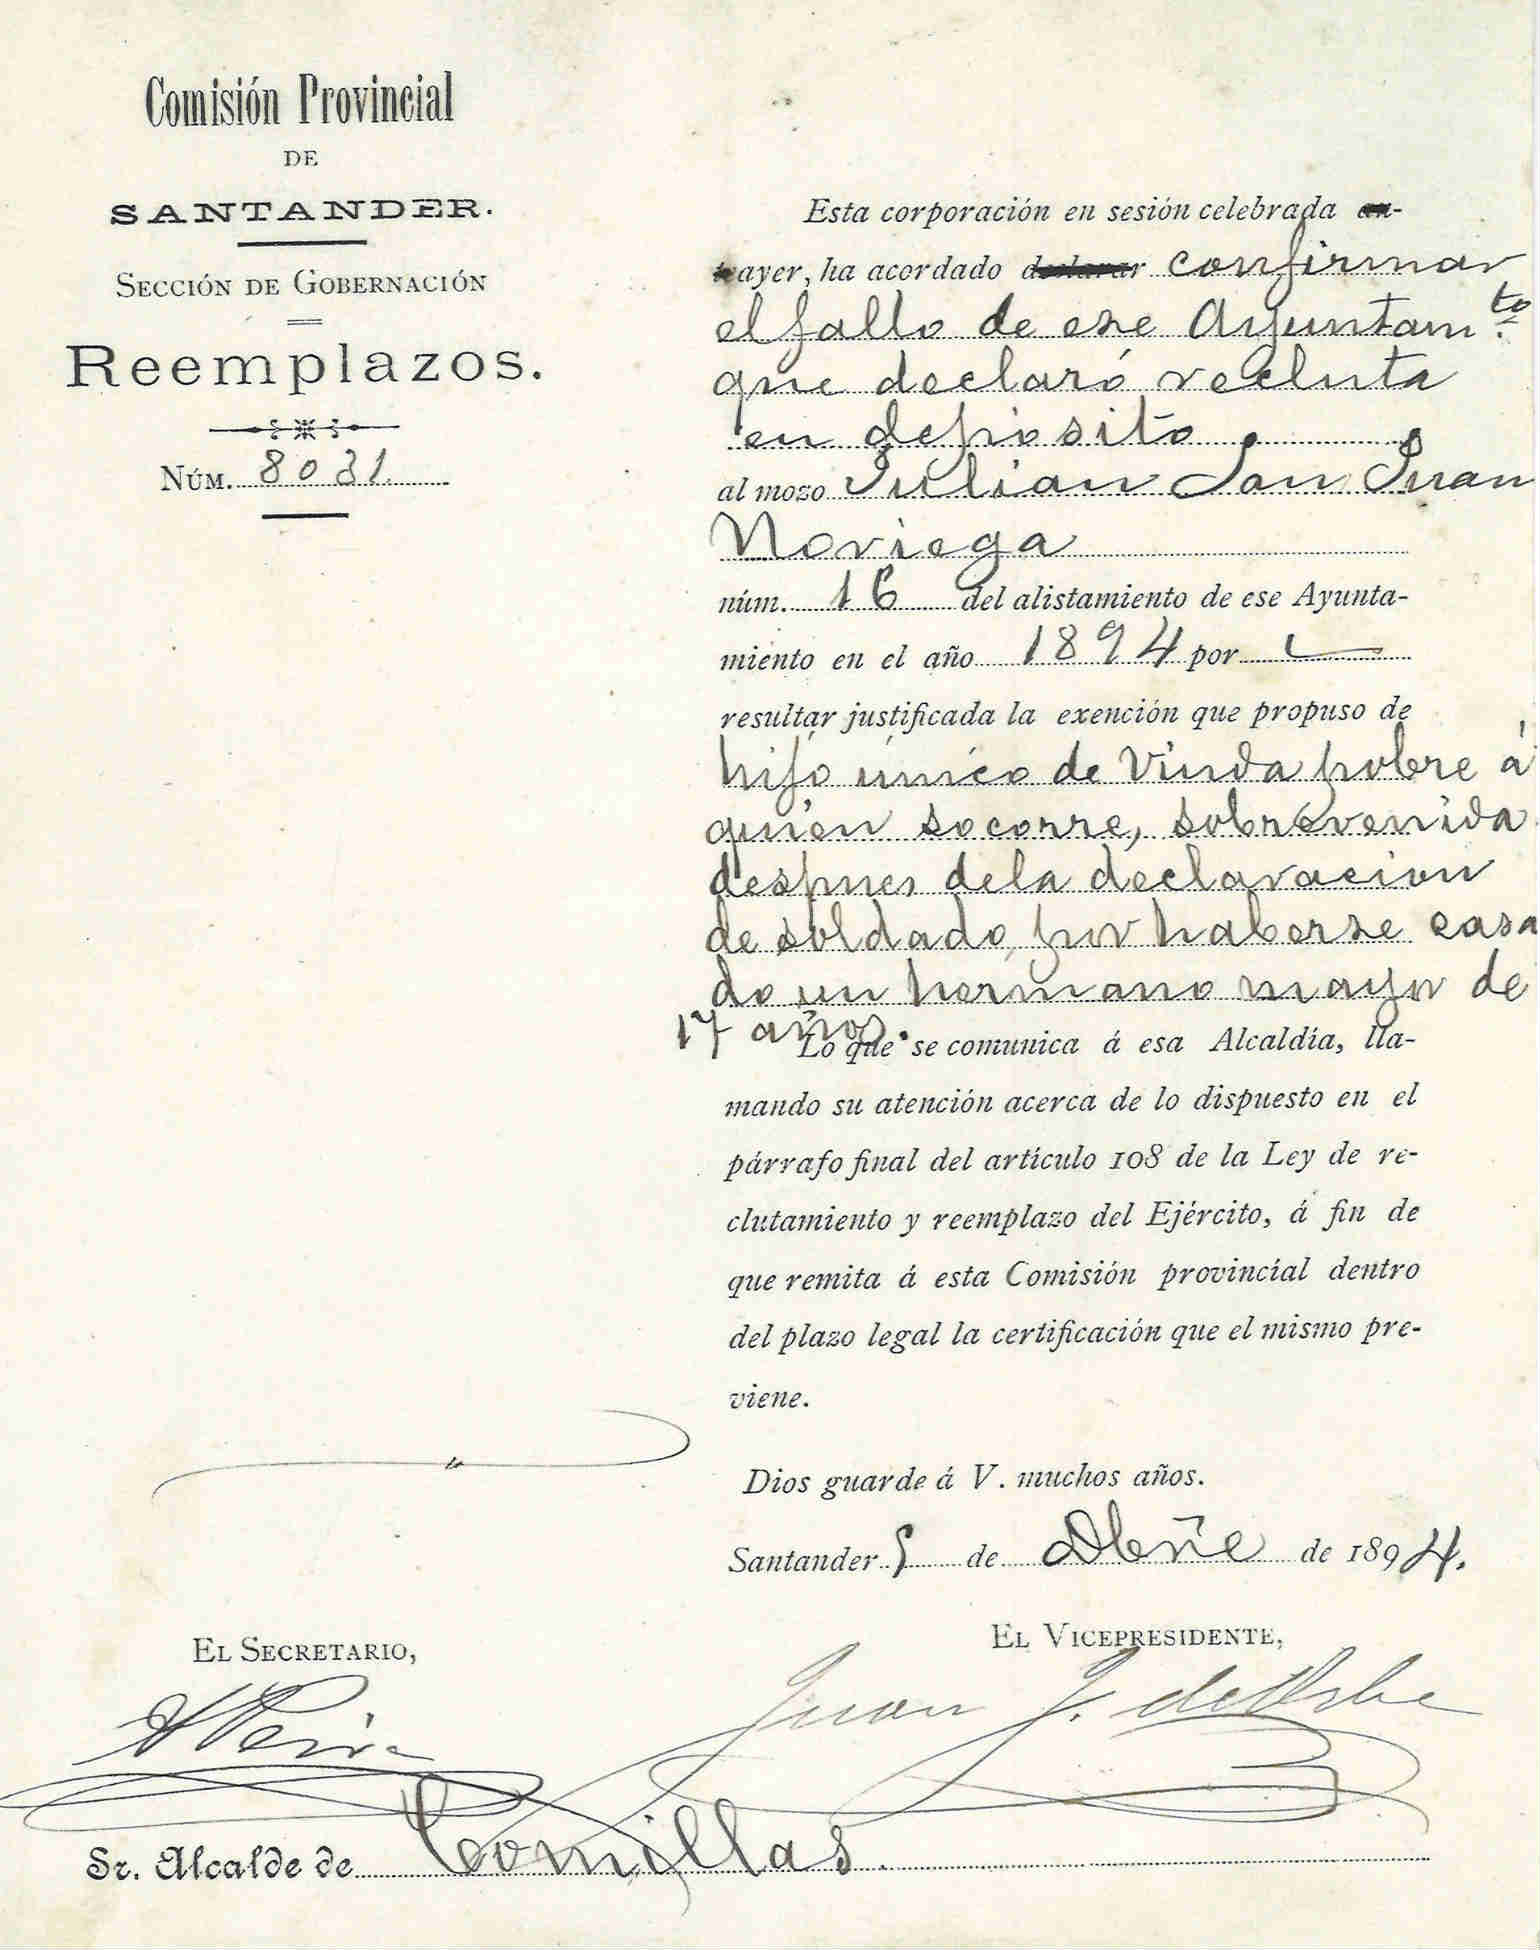 Comisión Provincial
DE
SANTANDER.
SECCIÓN DE GOBERNACIÓN
Reemplazos.
NÚM. 8031
Esta corporación en sesión celebrada an-
teayer, ha acordado declarar confirmar
el fallo de ese Ayuntam.to
que declaró recluta
en depósito
al mozo Julian San Juan
Noriega
núm. 16 del alistamiento de ese Ayunta-
miento en el año 1894 por
resultar justificada la exención que propuso de
hijo único de viuda pobre á
quien socorre, sobrevenida
despues dela declaracion
de soldado, por haberse casa
do un hermano mayor de
17 años.
Lo que se comunica á esa Alcaldía, lla-
mando su atención acerca de lo dispuesto en el
párrafo final del artículo 108 de la Ley de re-
clutamiento y reemplazo del Ejército, á fin de
que remita á esta Comisión provincial dentro
del plazo legal la certificación que el mismo pre-
viene.
Dios guarde á V. muchos años.
Santander de Dbre de 1894.
EL SECRETARIO,
EL VICEPRESIDENTE,
Juan J. de
Sr. Alcalde de Comillas.